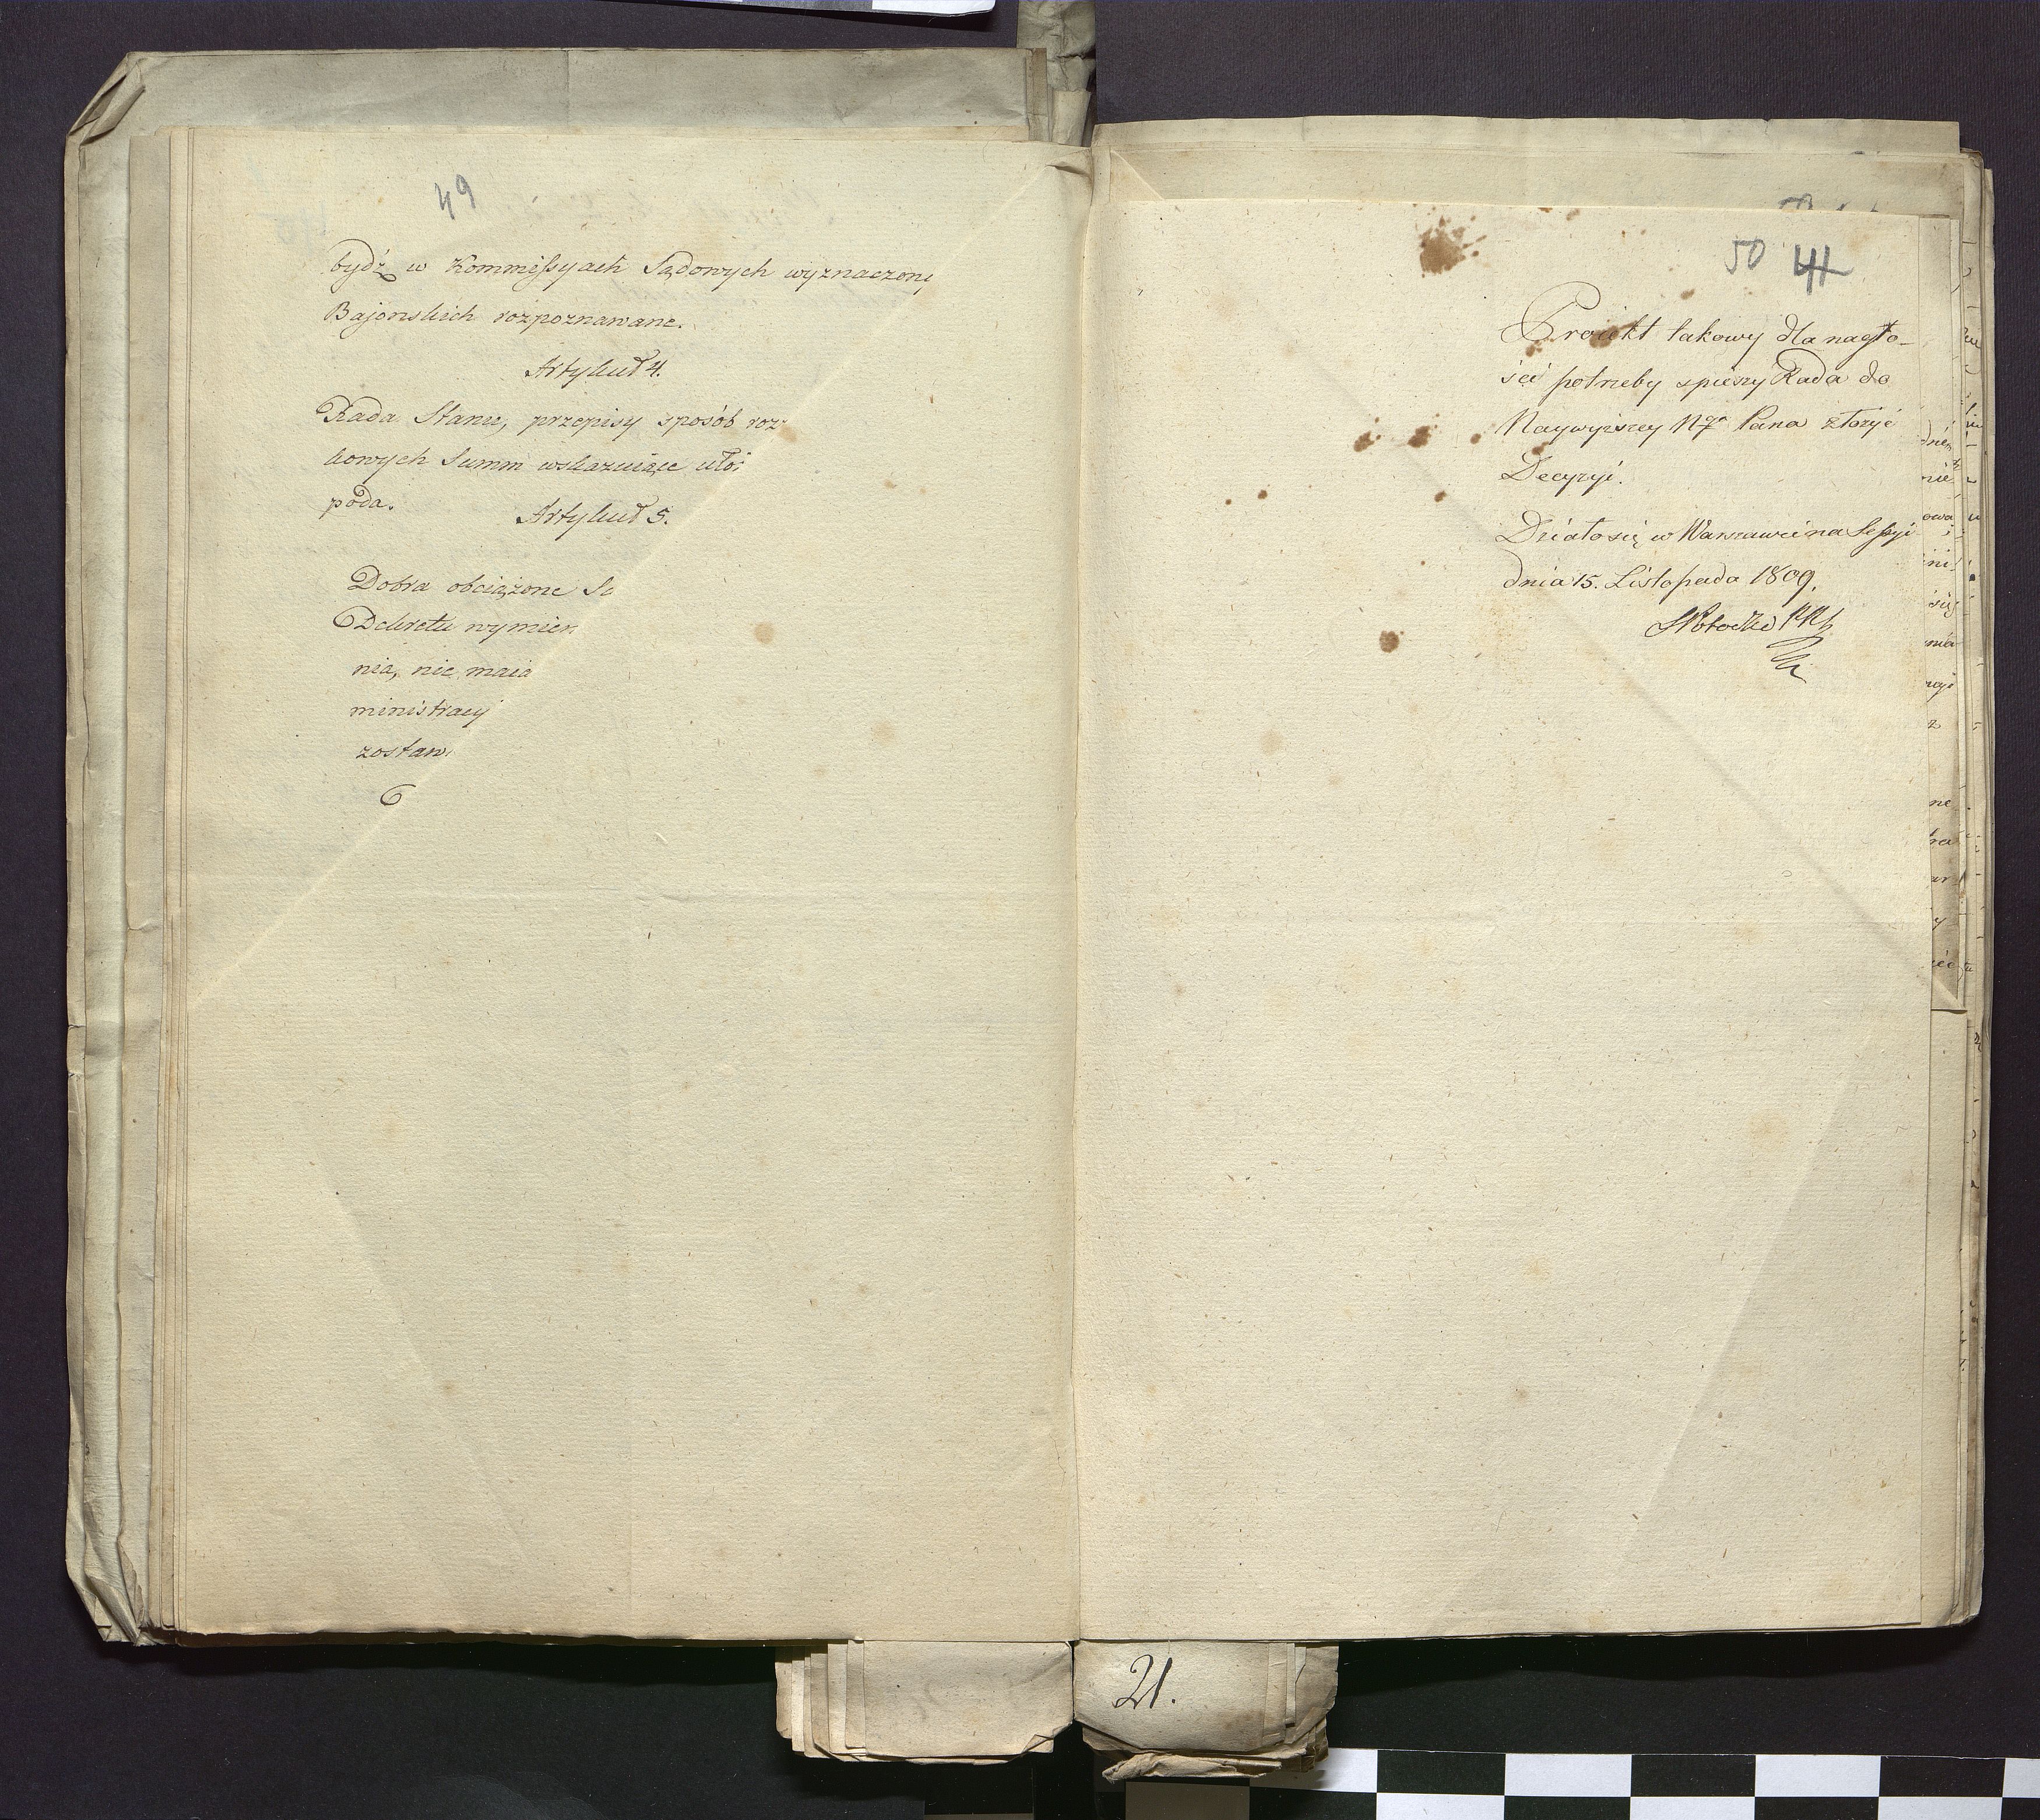 49
bydź w Kommissyach Sądowych wyznaczony
Bajońskich rozpoznawane.
Artykuł 4.
Rada Stanu, przepisy sposób roz
kowych Summ wskazuiące uło
poda.
Artykuł 5.
Dobra obciążone Su
Dekretu wymien
nia, nie maia
ministracy
zostaw
50 44
Proiekt takowy dla nagło-
ści potrzeby spieszy Rada do
Naywyższey NJo Pana złożyć
Decyzyi.
Działo się w Warszawie na Sessyi
dnia 15. Listopada 1809.
S Potocki
21.